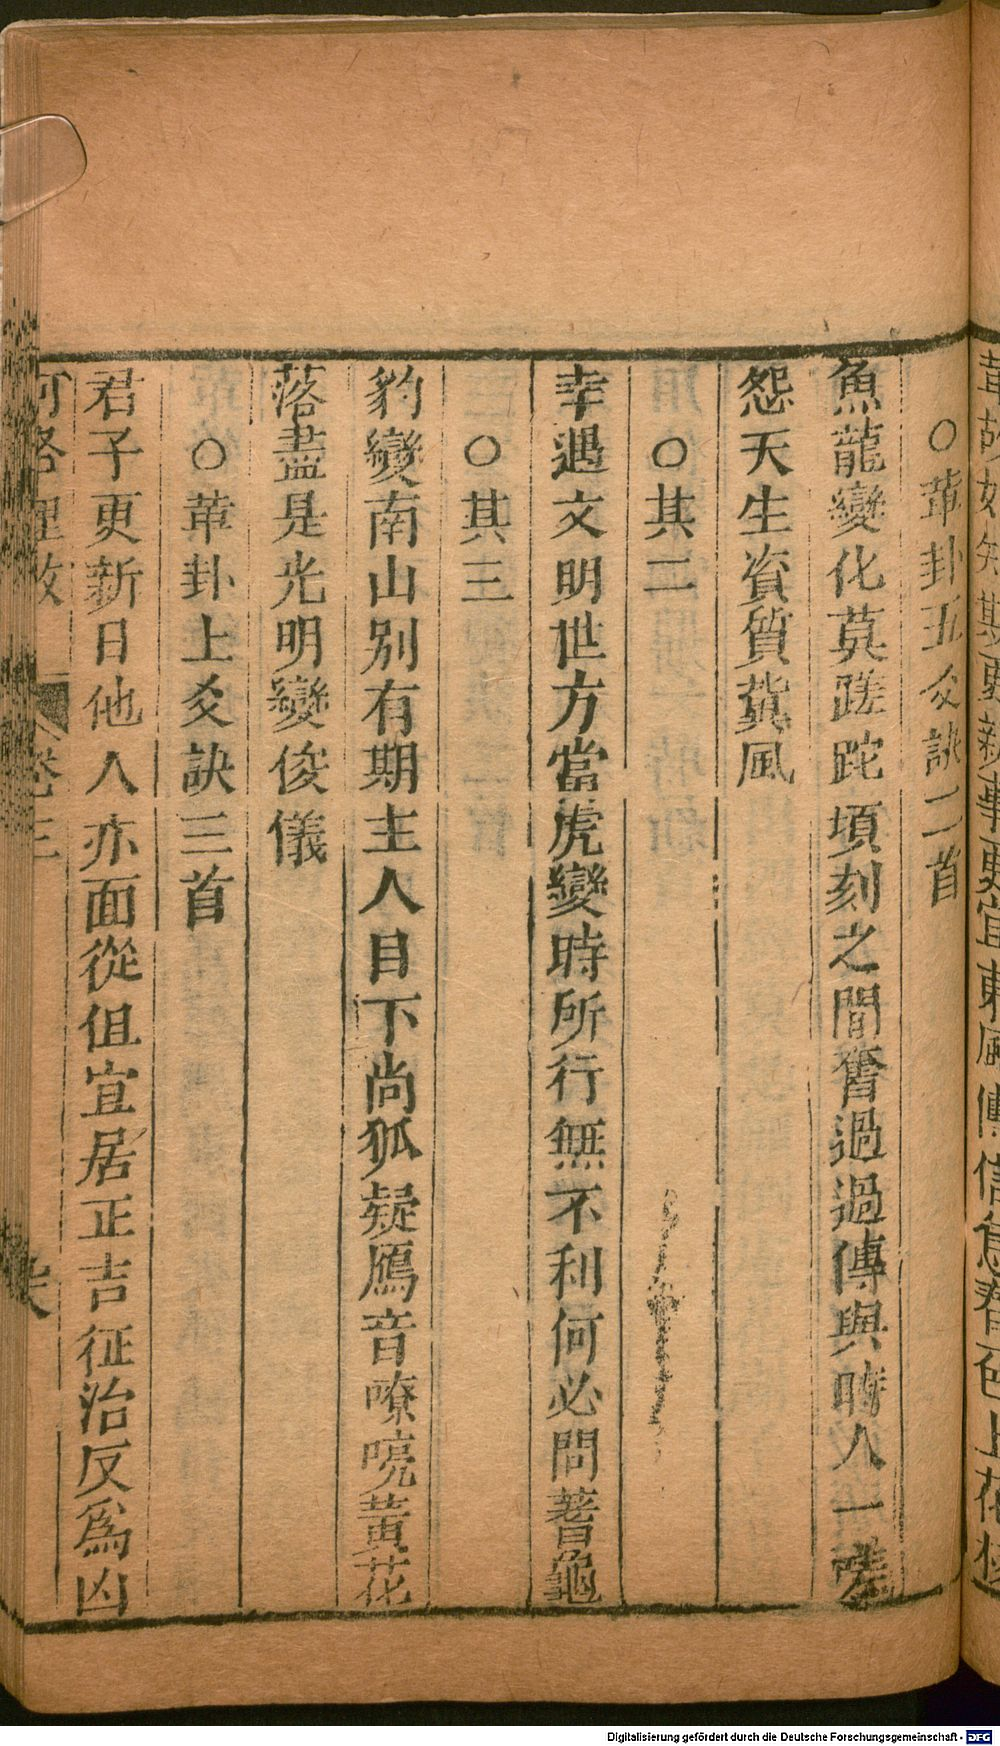 革卦五爻訣二首
魚龍變化莫蹉跎頃刻之間奮過過傳與時人一
怨天生資質冀風
○其二
幸遇文明世方當虎變時所行無不利何必問蓍龜
○其三
豹變南山別有期主人目下尚狐疑鴈音嘹喨黃花
落盡是光明變俊儀
○革卦上爻訣三首
君子更新日他人亦面從但宜居正吉征治反爲凶
河洛理數 卷三
Digitalisierung gefördert durch die Deutsche Forschungsgemeinschaft - DFG